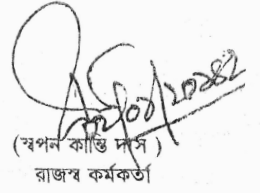 (স্বপন কান্তি দাস )
রাজস্ব কর্মকর্তা